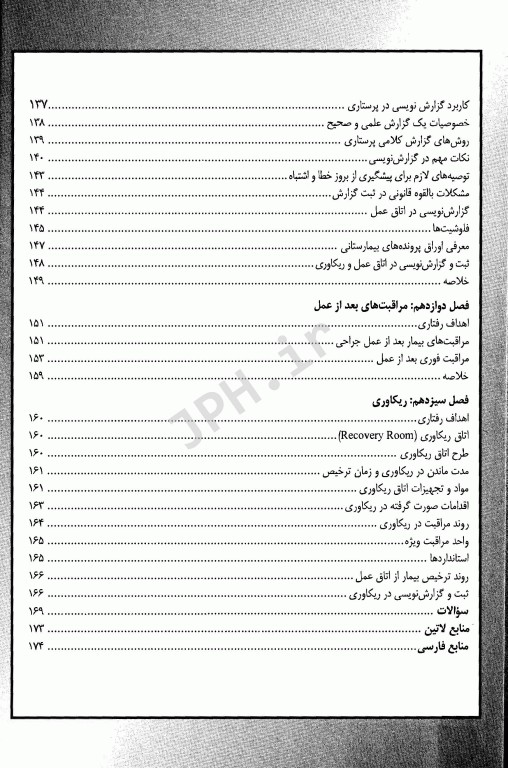 کاربرد گزارش نویسی در پرستاری ........ ۱۳۷
خصوصیات یک گزارش علمی و صحیح ........ ۱۳۸
روش‌های گزارش کلامی پرستاری ........ ۱۳۹
نکات مهم در گزارش‌نویسی ........ ۱۴۰
توصیه‌های لازم برای پیشگیری از بروز خطا و اشتباه ........ ۱۴۳
مشکلات بالقوه قانونی در ثبت گزارش ........ ۱۴۴
گزارش‌نویسی در اتاق عمل ........ ۱۴۴
فلوشیت‌ها ........ ۱۴۵
معرفی اوراق پرونده‌های بیمارستانی ........ ۱۴۷
ثبت و گزارش‌نویسی در اتاق عمل و ریکاوری ........ ۱۴۸
خلاصه ........ ۱۴۹
فصل دوازدهم: مراقبت‌های بعد از عمل
اهداف رفتاری ........ ۱۵۱
مراقبت‌های بیمار بعد از عمل جراحی ........ ۱۵۱
مراقبت فوری بعد از عمل ........ ۱۵۳
خلاصه ........ ۱۵۹
فصل سیزدهم: ریکاوری
اهداف رفتاری ........ ۱۶۰
اتاق ریکاوری (Recovery Room) ........ ۱۶۰
طرح اتاق ریکاوری ........ ۱۶۰
مدت ماندن در ریکاوری و زمان ترخیص ........ ۱۶۱
مواد و تجهیزات اتاق ریکاوری ........ ۱۶۱
اقدامات صورت گرفته در ریکاوری ........ ۱۶۳
روند مراقبت در ریکاوری ........ ۱۶۴
واحد مراقبت ویژه ........ ۱۶۵
استانداردها ........ ۱۶۵
روند ترخیص بیمار از اتاق عمل ........ ۱۶۶
ثبت و گزارش‌نویسی در ریکاوری ........ ۱۶۶
سؤالات ........ ۱۶۹
منابع لاتین ........ ۱۷۳
منابع فارسی ........ ۱۷۴
JPH.ir